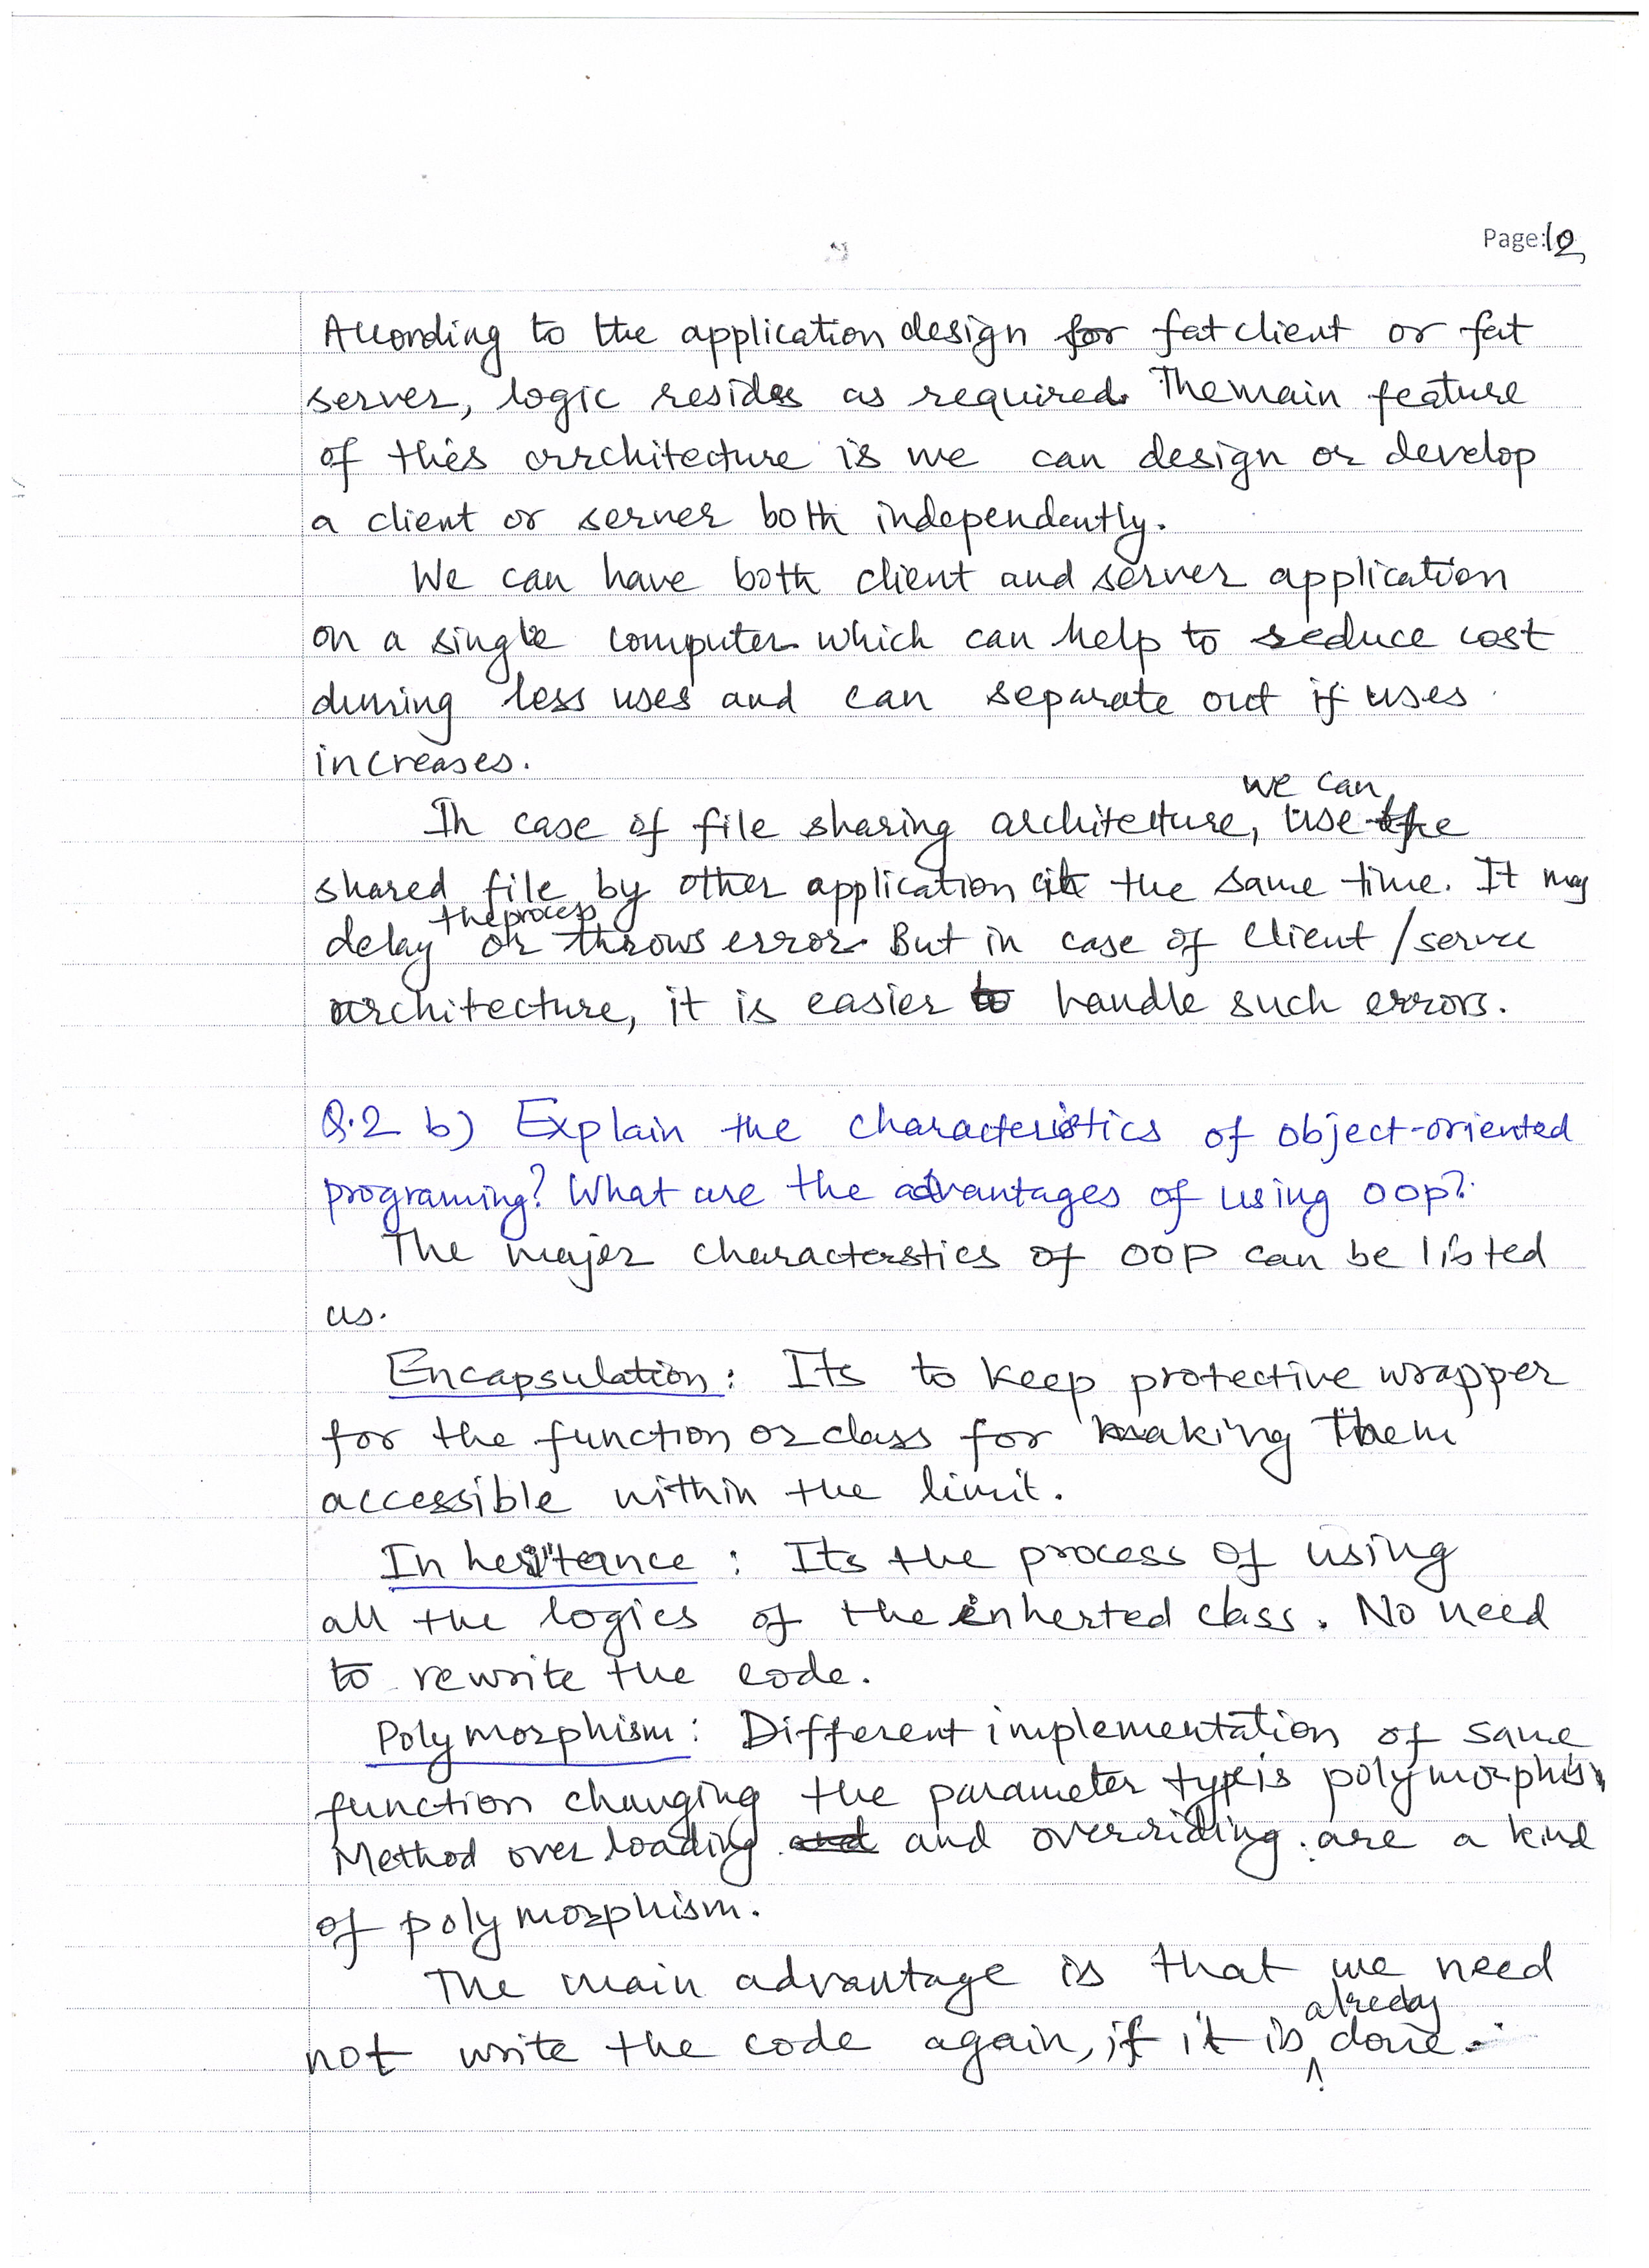 Page:12
According to the application design for fat client or fat
server, logic resides as required. The main feature
of this architecture is we can design or develop
a client or server both independently.
We can have both client and server application
on a single computer which can help to reduce cost
during less uses and can separate out if uses
increases.
In case of file sharing architecture, we can use the
shared file by other application at the same time. It may
delay the process or throws error. But in case of client/server
architecture, it is easier to handle such errors.
Q.2 b) Explain the characteristics of object-oriented
programing? What are the advantages of using OOP?
The major characterstics of OOP can be listed
as.
Encapsulation: Its to keep protective wrapper
for the function or class for making them
accessible within the limit.
Inheritance: Its the process of using
all the logics of the inherted class. No need
to rewrite the code.
Polymorphism: Different implementation of same
function changing the parameter type is polymorphism
Method overloading and overriding are a kind
of polymorphism.
The main advantage is that we need
not write the code again, if it is already done.